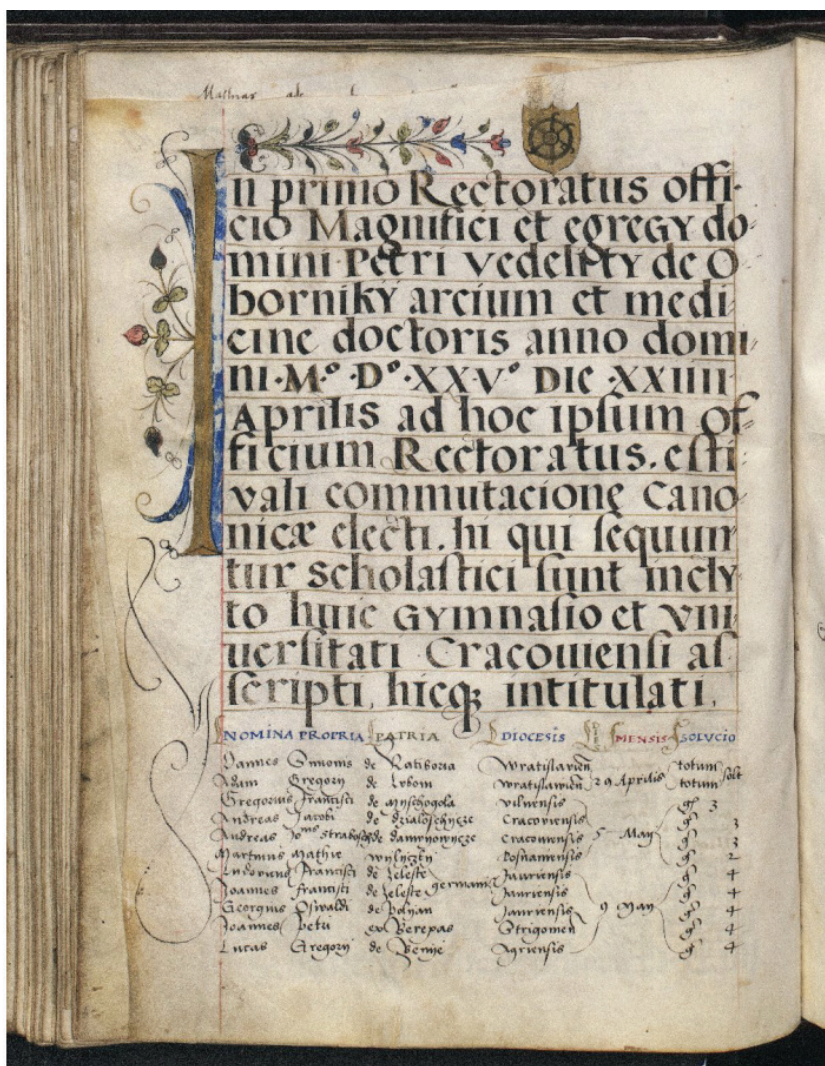 In primo Rectoratus offi-
cio Magnifici et egregy do-
mini Petri vedelicY de O
bornikY arcium et medi-
cine doctoris anno domi-
ni ·M·º ·Dº·XXVº DIC ·XXIIII
Aprilis ad hoc ipsum of-
ficium Rectoratus. esti-
vali commutacionę Cano-
nicæ electi. hi qui sequun-
tur scholastici sunt incly-
to huic GYmnasio et vni-
uersitati Cracouiensi as-
scripti, hicq; intitulati.
NOMINA PROPRIA PATRIA DIOCESIS MENSIS SOLVCIO
Joannes Simonis de Ratiboria Wratislavien totum
Adam Gregory de Lubom wratislawien 29 Aprilis totum solt
Gregorius Francisci de vilnensis gr 3
Andreas Jacobi de dzialoschycze Cracoviensis gr 3
Andreas de Cracoviensis 5 May gr 3
Martinus Mathie posnaniensis gr 2
Ludovicus Francisci de Zeleste Jauriensis gr 4
Joannes Francisci de Zeleste germani Jauriensis gr 4
Georgius Oswaldi de Polyan Jauriensis 9 May gr 4
Joannes Petri ex Berepas Strigonien gr 4
Lucas Gregory de Agriensis gr 4